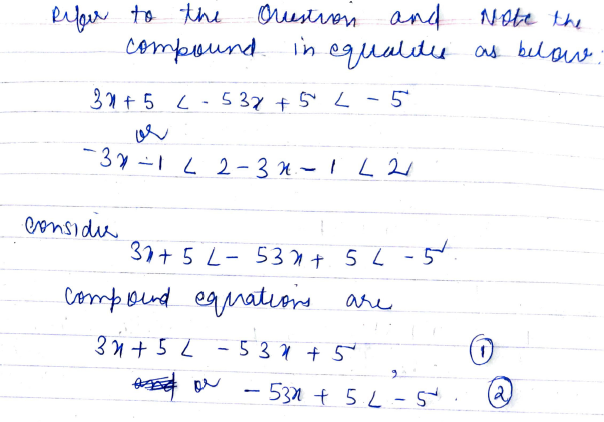 Refer to the Question and Note the
compound in equalities as below:
3x + 5 < - 53x + 5 < - 5
or
-3x - 1 < 2 - 3x - 1 < 2
consider
3x + 5 < - 53x + 5 < - 5.
compound equations are
3x + 5 < - 53x + 5 , ①
or - 53x + 5 < - 5 . ②